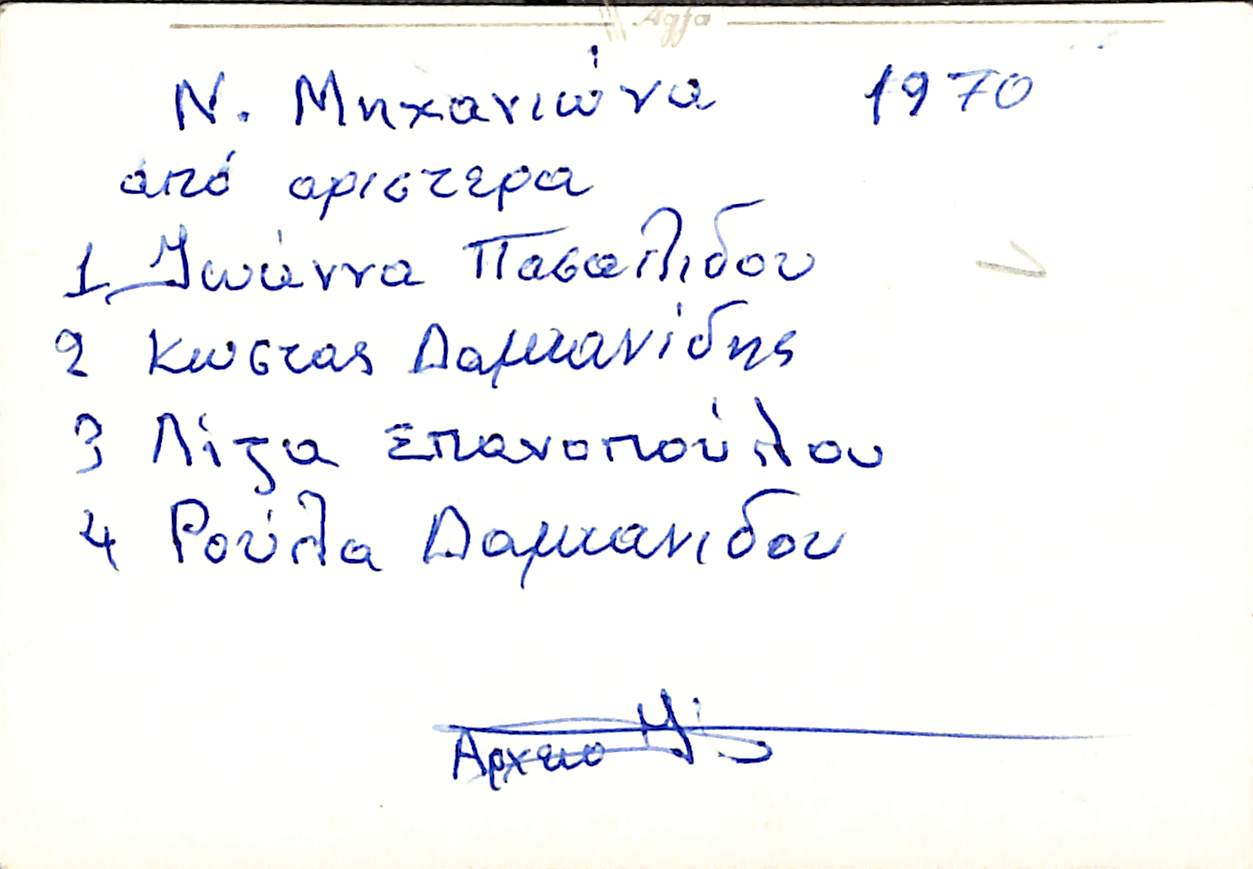 Agfa
Ν. Μηχανιώνα 1970
από αριστερα
1 Ιωάννα Πασαλιδου
2 Κωστας Δαμιανίδης
3 Λίζα Σπανοπούλου
4 Ρούλα Δαμιανιδου
Αρχειο